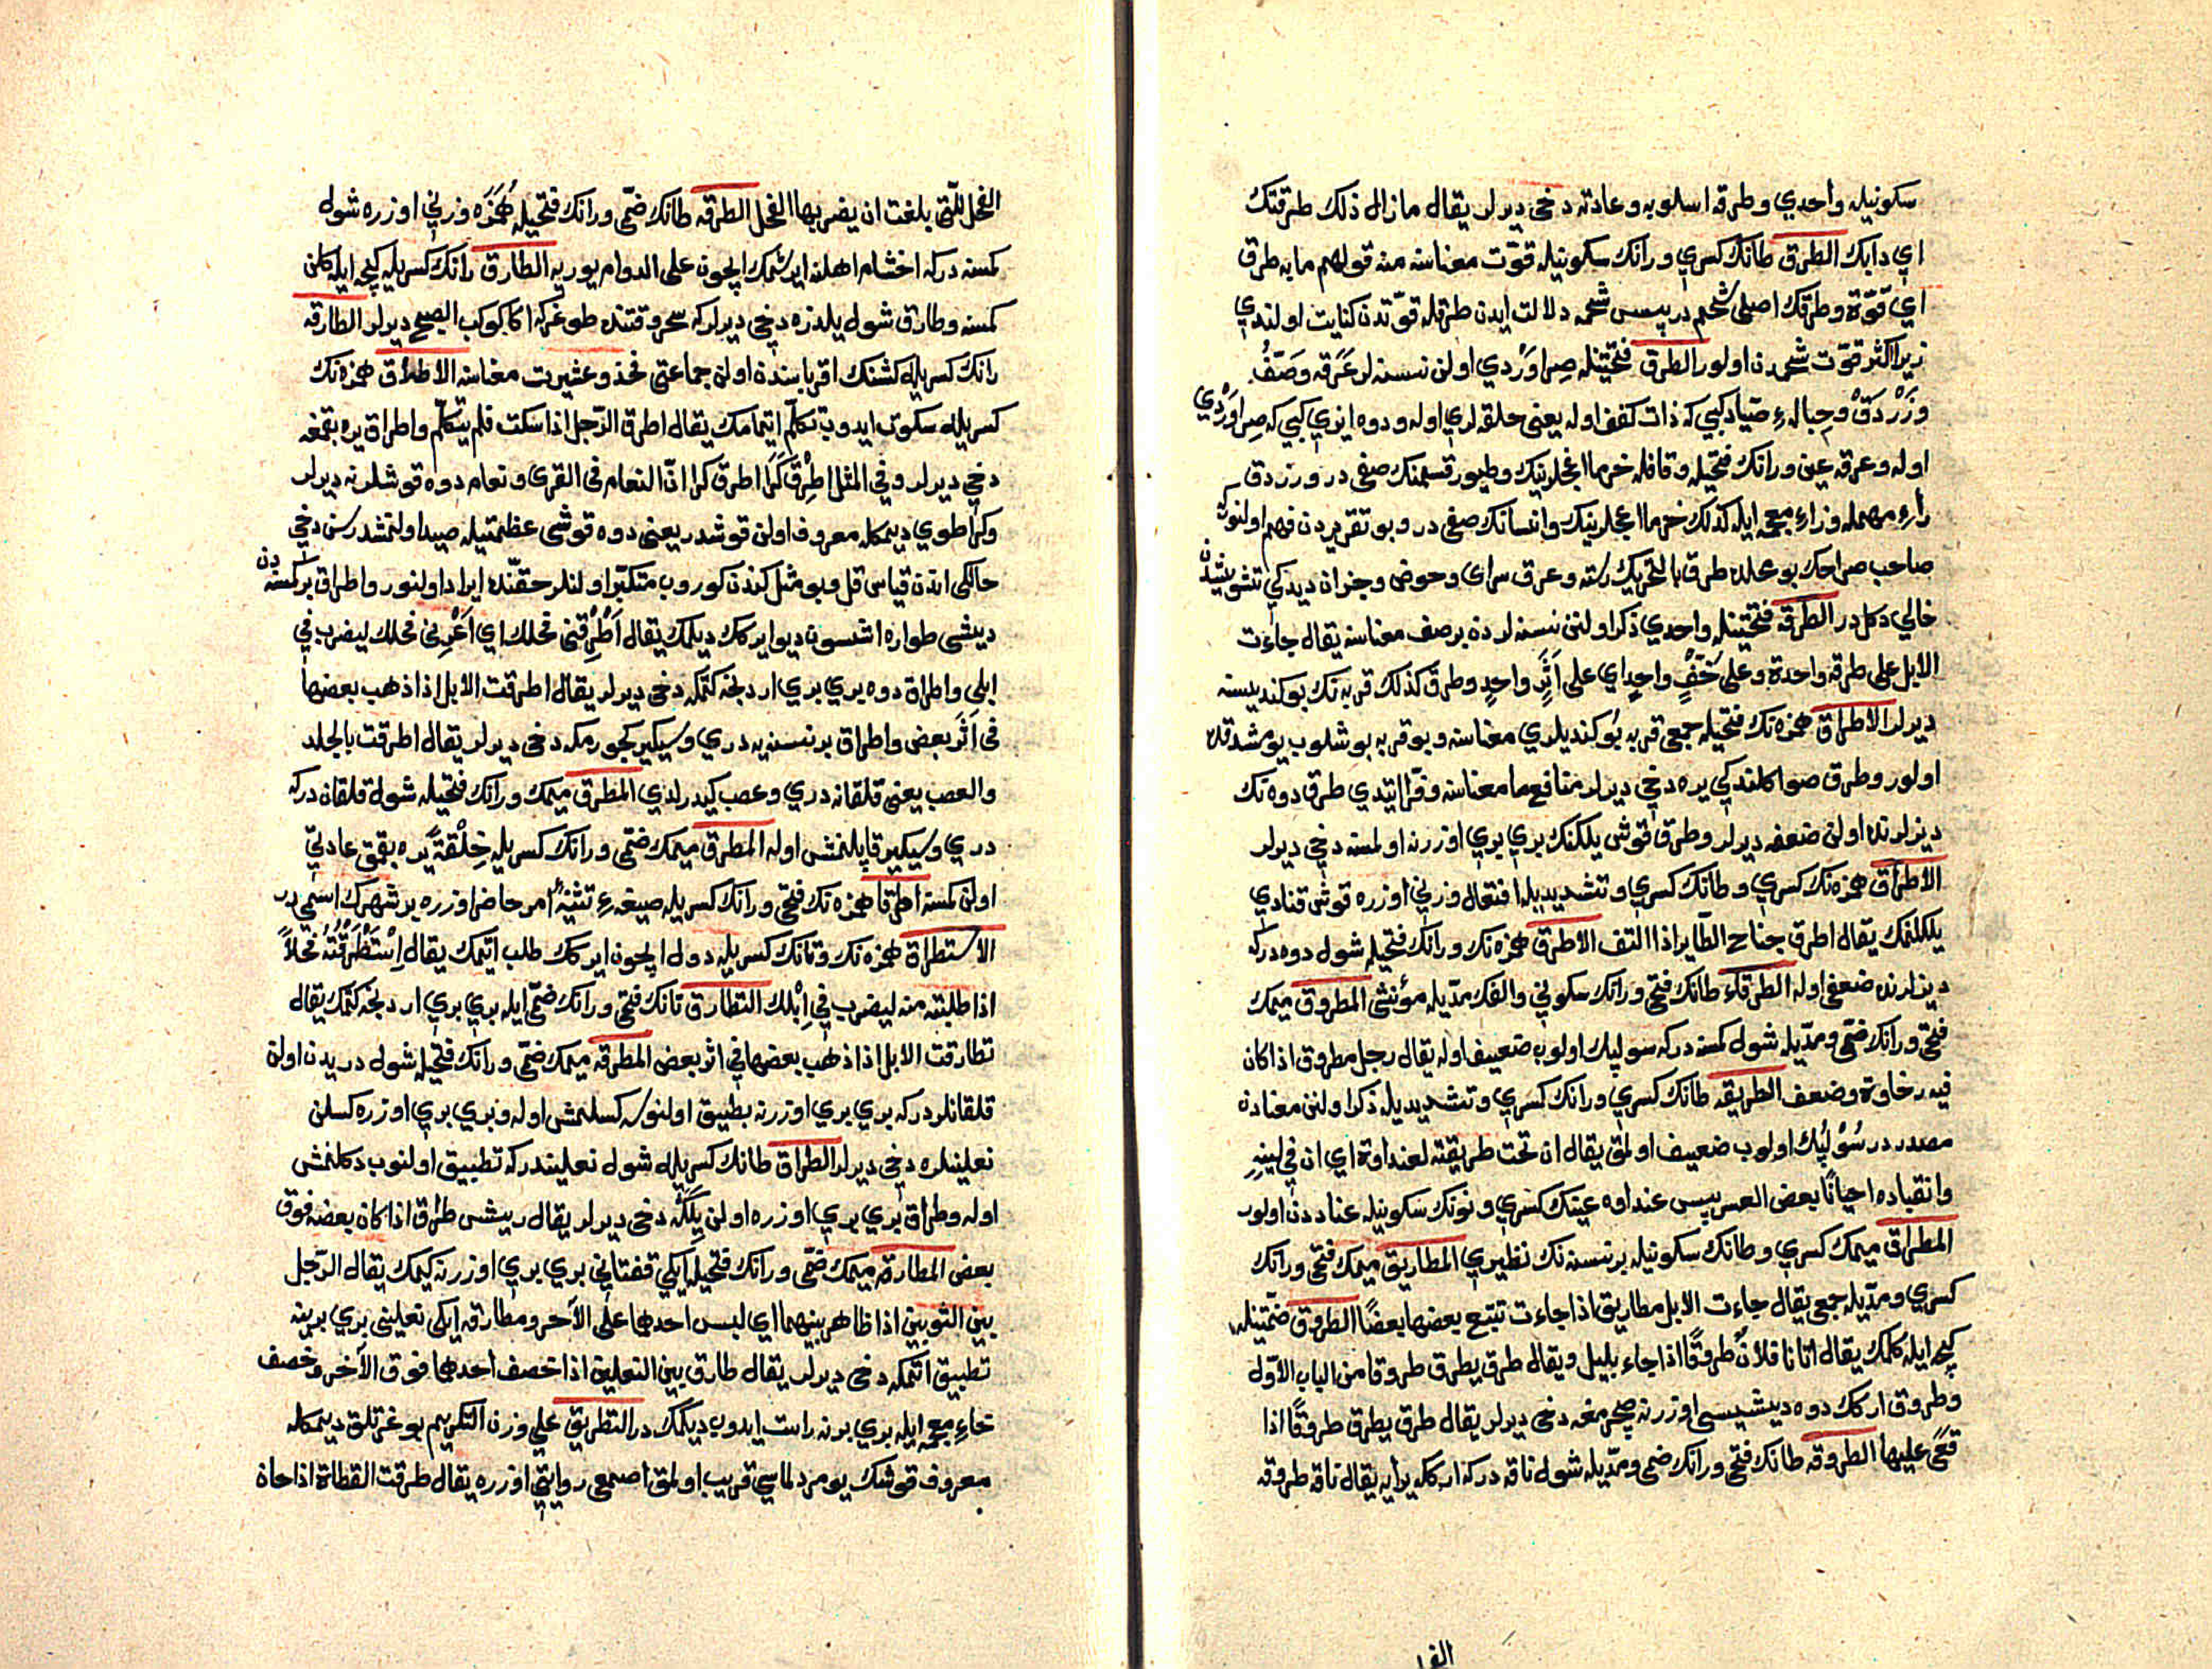 سكونيله واحدي وطرقه اسلوبه وعادته دخي ديرلر يقال مازال ذلك طرقتك
اي دابك الطرق طانك كسري ورانك سكونيله قوّت معناسنه منه قولهم مابه طرق
اي قوّة وطرقك اصلى شحم در پس شحمه دلالت ايدن طرقله قوّتدن كنايت اولندي
زيرا اكثر قوّت شحمدن اولور الطرق فتحتينله صِراوَرْدي اولن نسنه لر عَرَقه وصَفّ
وزَرْدَقْ وحِباله ء صيّاد كبي كه ذات كفف اوله يعنى حلقه لري اوله ودوه ايزي كبي كه صِراوَرْدي
اوله وعرقه عين ورانك فتحيله وقافله خرما اغجلرينك وطيور قسمنك صفى در وزردق
راء مهمله وزاء معجمه ايله كذلك خرما اغجلرينك وانسانك صفى در وبو تقريردن فهم اولنور كه
صاحب صراحك بو محلده طرق بالتحريك رسته وعرق سراى وحوض وجزان ديدكي تشويشدن
خالي دكلدر الطرقه فتحتينله واحدي ذكر اولنن نسنه لردن برصف معناسنه يقال جاءت
الابل على طرقه واحدة وعلى خُفٍّ واحدٍ اي على اَثَرٍ واحدٍ وطرق كذلك قربه نك بوكنديسنه
ديرلر الاطراق همزه نك فتحيله جمعى قربه بوكنديلري معناسنه وبو قربه بوشلوب يومشدقده
اولور وطرق صوا كلندكي يره دخي ديرلر مناقع ما معناسنه وقرّا ايتدي طرق دوه نك
ديزلرنده اولن ضعفه ديرلر وطرق قوش يلكنك بري بري اوزرنه اولمسنه دخي ديرلر
الاطراق همزه نك كسري وطانك كسري وتشديديله افتعال وزني اوزره قوش قنادي
يلكلنمك يقال اطرق جناح الطّاير اذا التف الاطرق همزه نك ورانك فتحيله شول دوه دركه
ديزلرنده ضعفى اوله الطرقاء طانك فتحى ورانك سكوني والفك مدّيله مؤنثى المطروق ميمك
فتحى ورانك ضمّى ومدّيله شول كمسنه دركه سولپك اولوب ضعيف اوله يقال رجل مطروق اذا كان
فيه رخاوة وضعف الطريقه طانك كسري ورانك كسري وتشديديله ذكر اولنن معنادن
مصدر در سُوْلپُك اولوب ضعيف اولمق يقال ان تحت طريقته لعنداوة اي ان في لينه
وانقياده احيانًا بعض العسر پس عنداوه عينك كسري ونونك سكونيله عناددن اولور
المطراق ميمك كسري وطانك سكونيله برنسنه نك نظيري المطاريق ميمك فتحى ورانك
كسري ومدّيله جمعى يقال جاءت الابل مطاريق اذا جاءت تتبع بعضها بعضًا الطروق ضمّتينله
كيجه ايله كلمك يقال اتانا فلان طروقًا اذا جاء بليل ويقال طرق يطرق طروقا من الباب الاوّل
وطروق اركك دوه ديشيسى اوزرنه صچرمغه دخي ديرلر يقال طرق يطرق طروقًا اذا
قعى عليها الطروقه طانك فتحى ورانك ضمى ومدّيله شول ناقه دركه اركله يرايه يقال ناقة طروقه
الفحل للّتى بلغت ان يضربها الفحل الطرقه طانك ضمّى ورانك فتحيله هُمَزَه وزني اوزره شول
كمسنه دركه اخشام اهلنه ايرشمك ايچون على الدوام يوريه الطارق رانك كسريله كيجه ايله كلن
كمسنه وطارق شول يلدزه دخي ديرلركه سحر وقتنده طوغركه اكا كوكب الصبح ديرلر الطارقه
رانك كسريله كشنك اقرباسندن اولن جماعتى فخذ وعشيرت معناسنه الاطراق همزه نك
كسريله سكوت ايدوب تكلّم ايتمامك يقال اطرق الرّجل اذا سكت فلم يتكلّم واطراق يره بقمغه
دخي ديرلر وفي المثل اَطْرِقْ كَرَا اطرق كرا انّ النعام فى القرى ونعام دوه قوشلرنه ديرلر
وكرا طوي ديمكله معروف اولن قوشدر يعنى دوه قوشى عظمتيله صيد اولنمشدر سن دخي
حالكى اندن قياس قل وبو مثل كندن كوروب متكبّر اولنلر حقّنده ايراد اولنور واطراق بر كمسنه دن
ديشى طواره اشسون ديو ايركك ديلمك يقال اَطْرِقْنى فحلك اي اَعِرْنى فحلك ليضرب في
ابلى واطراق دوه بري بري اردنجه كتمكه دخى ديرلر يقال اطرقت الابل اذا ذهب بعضها
فى اَثَر بعض واطراق برنسنه يه دري وسيكير كچورمكه دخى ديرلر يقال اطرقت بالجلد
والعصب يعنى قلقانه دري وعصب كيدرلدي المطرق ميمك ورانك فتحيله شول قلقان دركه
دري وسيكير قاپلنمش اوله المطرق ميمك ضمّى ورانك كسريله خِلْقةً يره بقمق عادتي
اولن كمسنه اطرقا همزه نك فتحى ورانك كسريله صيغه ء تثنيه ء امر حاضر اوزره بر شهرك اسمى در
الاستطراق همزه نك وتانك كسريله دول ايچون ايركك طلب اتمك يقال اِسْتَطْرَقْتُهُ فحلاً
اذا طلبته منه ليضرب في اِبْلك التطارق تانك فتحى ورانك ضمّى ايله بري بري اردنجه كتمك يقال
تطارقت الابل اذا ذهب بعضها في اثر بعض المطرقه ميمك ضمّى ورانك فتحيله شول دريدن اولن
قلقانلردركه بري بري اوزرنه تطبيق اولنورلر كسلنمش اوله وبري بري اوزره كسلن
نعلينلره دخي ديرلر الطراق طانك كسريله شول نعليندركه تطبيق اولنوب دكلنمش
اوله وطراق بري بري اوزره اولن يِلَكْه دخى ديرلر يقال ريش طراق اذا كان بعضه فوق
بعض المطارقه ميمك ضمّى ورانك فتحيله ايكي قفتاني بري بري اوزرنه كيمك يقال الرّجل
بين الثوبين اذا ظاهر بينهما اي لبس احدهما على الآخر ومطارقه ايكى نعلينى بري برينه
تطبيق اتمكه دخى ديرلر يقال طارق بين النعلين اذا خصف احدهما فوق الآخر وخصف
خاء معجمه ايله بري برنه راست ايدوب ديكمك در التطريق على وزن التكريم بوغرتلق ديمكله
معروف قوشك يومردلماسي قريب اولمق اصمعى روايتى اوزره يقال طرقت القطاة اذا حان
الفحل